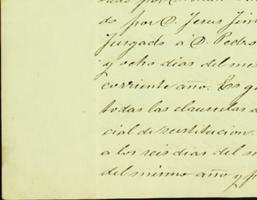 do por D. Jesus Jim
Juzgado á D. Pedro
y ocho dias del mes
corriente año. Es qu
todas las clausulas d
cial de restitucion.
a los seis dias del m
del mismo año y f